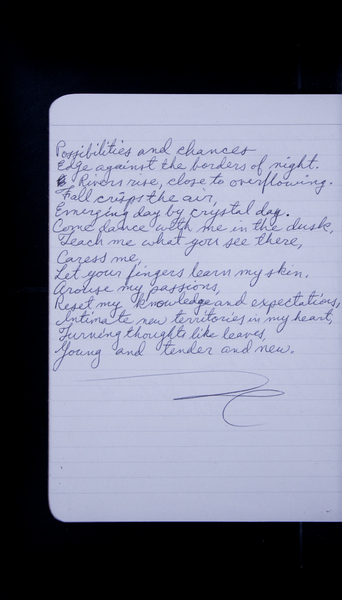 Possibilities and chances
Edge against the borders of night.
Rivers rise, close to overflowing.
Fall crisps the air,
Emerging day by crystal day.
Come dance with me in the dusk,
Teach me what you see there,
Caress me,
Let your fingers learn my skin.
Arouse my passions,
Reset my knowledge and expectations,
Intimate new territories in my heart,
Turning thoughts like leaves,
Young and tender and new.